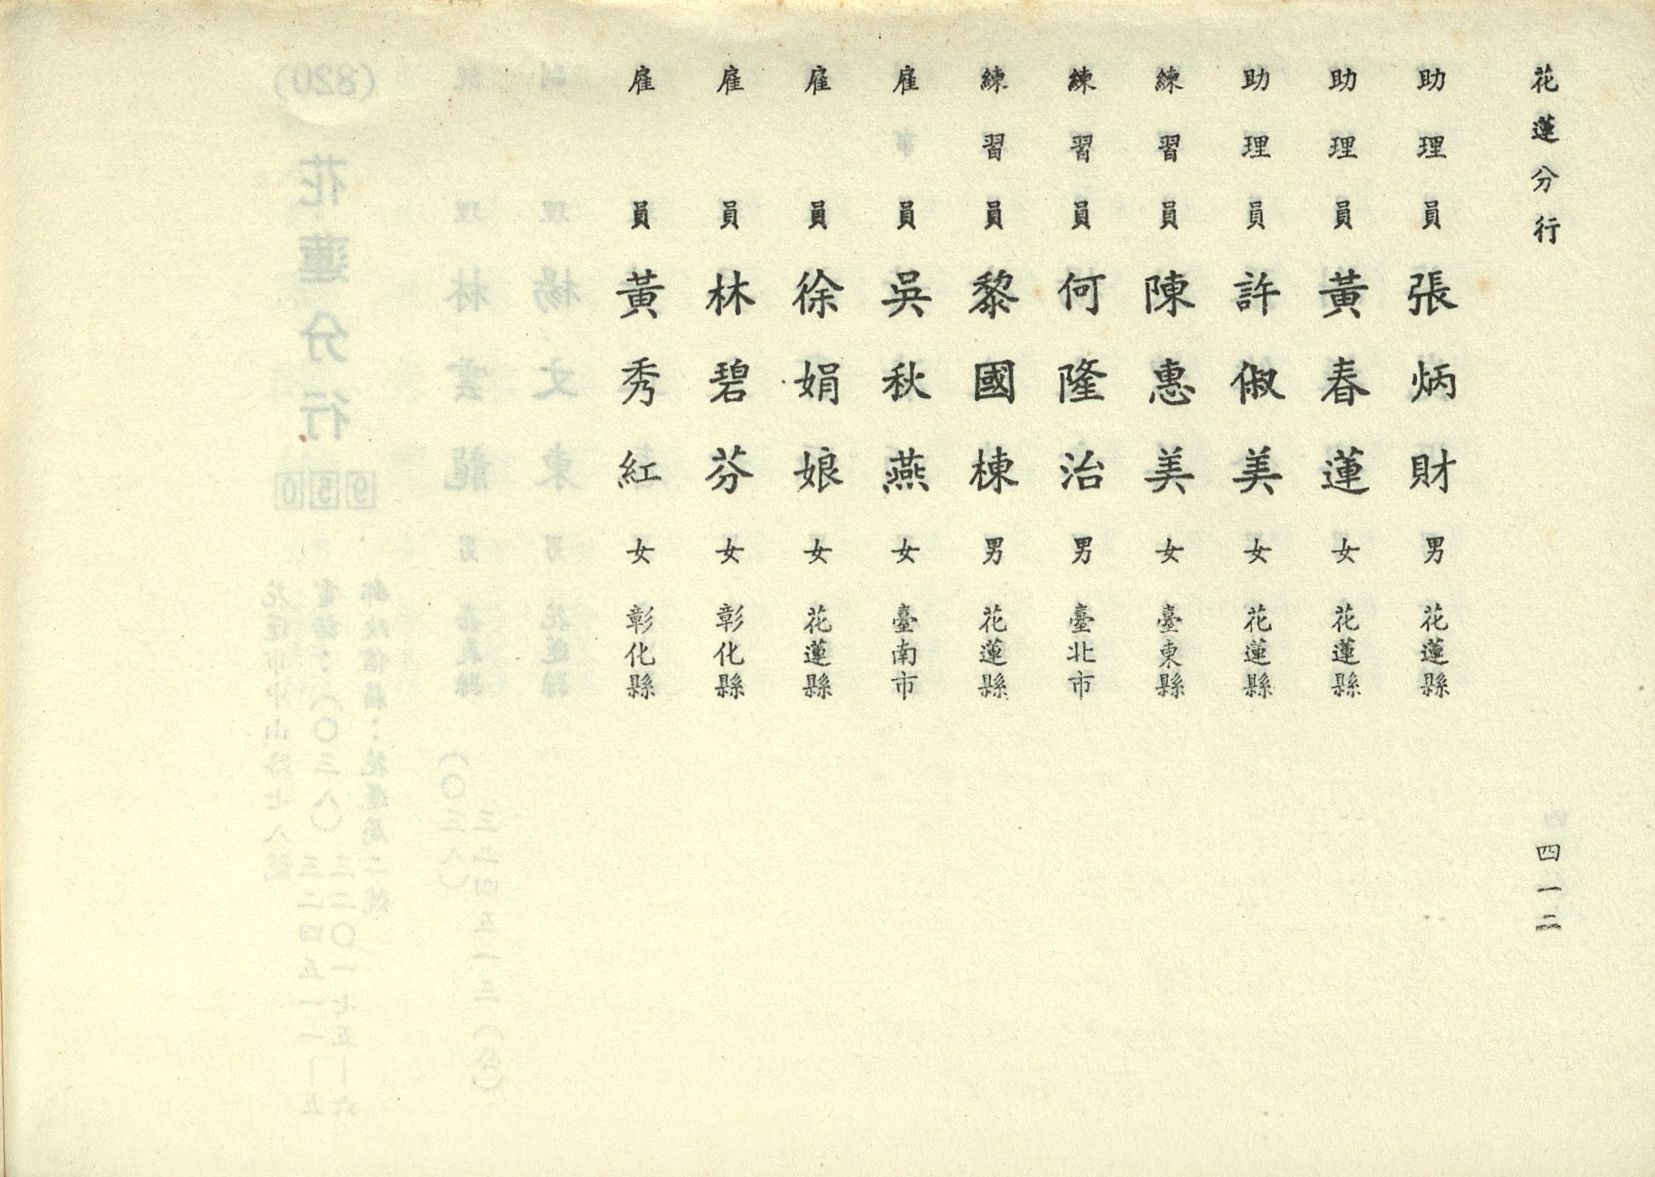 花蓮分行
四一二
助理員 張炳財 男 花蓮縣
助理員 黃春蓮 女 花蓮縣
助理員 許俶美 女 花蓮縣
練習員 陳惠美 女 臺東縣
練習員 何隆治 男 臺北市
練習員 黎國棟 男 花蓮縣
雇員 吳秋燕 女 臺南市
雇員 徐娟娘 女 花蓮縣
雇員 林碧芬 女 彰化縣
雇員 黃秀紅 女 彰化縣